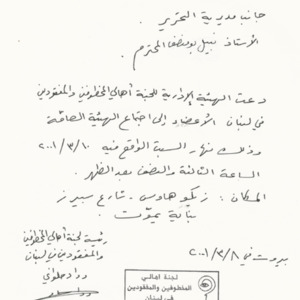 جانب مديرية التحرير
الأستاذ نبيل بومنصف المحترم
دعت الهيئة الإدارية للجنة أهالي المخطوفين والمفقودين
في لبنان الأعضاء إلى اجتماع الهيئة العامة
وذلك نهار السبت الواقع فيه ٢٠٠١/٣/١٠
الساعة الثالثة والنصف بعد الظهر.
المكان: زيكو هاوس - شارع سبيرز
بناية يموت.
بيروت في ٢٠٠١/٣/٨
رئيسة لجنة أهالي المخطوفين
والمفقودين في لبنان
وداد حلواني
لجنة اهالي
المخطوفين والمفقودين
في لبنان